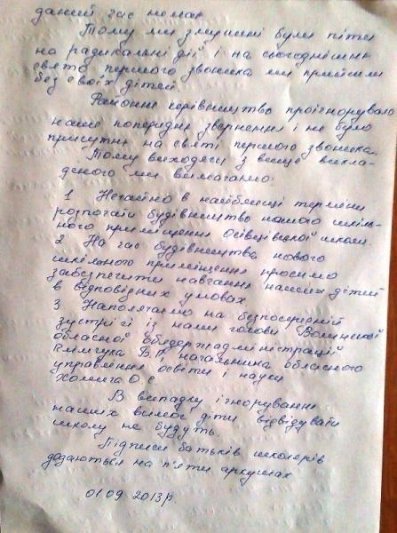 даний час немає
Тому ми змушені були піти
на радикальні дії і на сьогоднішнє
свято першого дзвоника ми прийшли
без своїх дітей
Районне керівництво проігнорувало
наше попереднє звернення і не було
присутні на святі першого дзвоника.
Тому виходячи з вище викла-
деного ми вимагаємо:
1. Негайно в найближчі терміни
розпочати будівництво нового шкіль-
ного приміщення школи
2. На час будівництва нового
шкільного приміщення просимо
забезпечити навчання наших дітей
в відповідних умовах
3. Наполягаємо на безпосередній
зустрічі із нами голови Волинської
обласної облдержадміністрації
Клімчука Б.П., начальника обласного
управління освіти і науки
О.С
В випадку ігнорування
наших вимог діти відвідувати
школу не будуть.
Підписи батьків школярів
додаються на п'яти аркушах
01.09 2013 р.